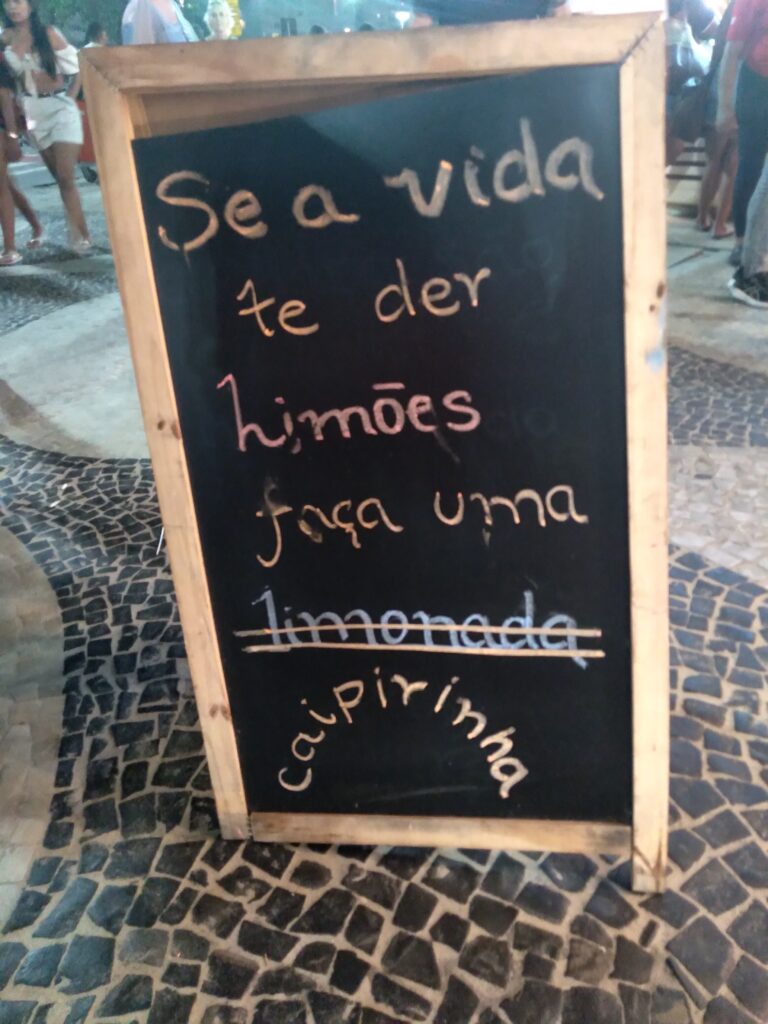 Se a vida
te der
limões
faça uma
limonada
caipirinha